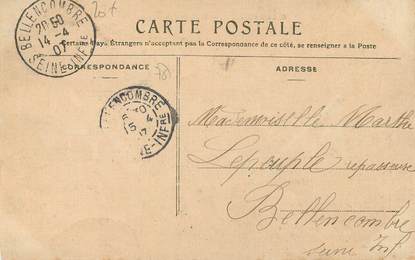 20+
BELLENCOMBRE
20 50
14 -4
07
SEINE-INFRE
CARTE POSTALE
Certains Pays Étrangers n'acceptant pas la Correspondance de ce côté, se renseigner à la Poste
CORRESPONDANCE
ADRESSE
BELLENCOMBRE
15 4
INFRE
Mademoiselle Marthe
Lepouple repasseuse
Bellencombre
Seine Inf